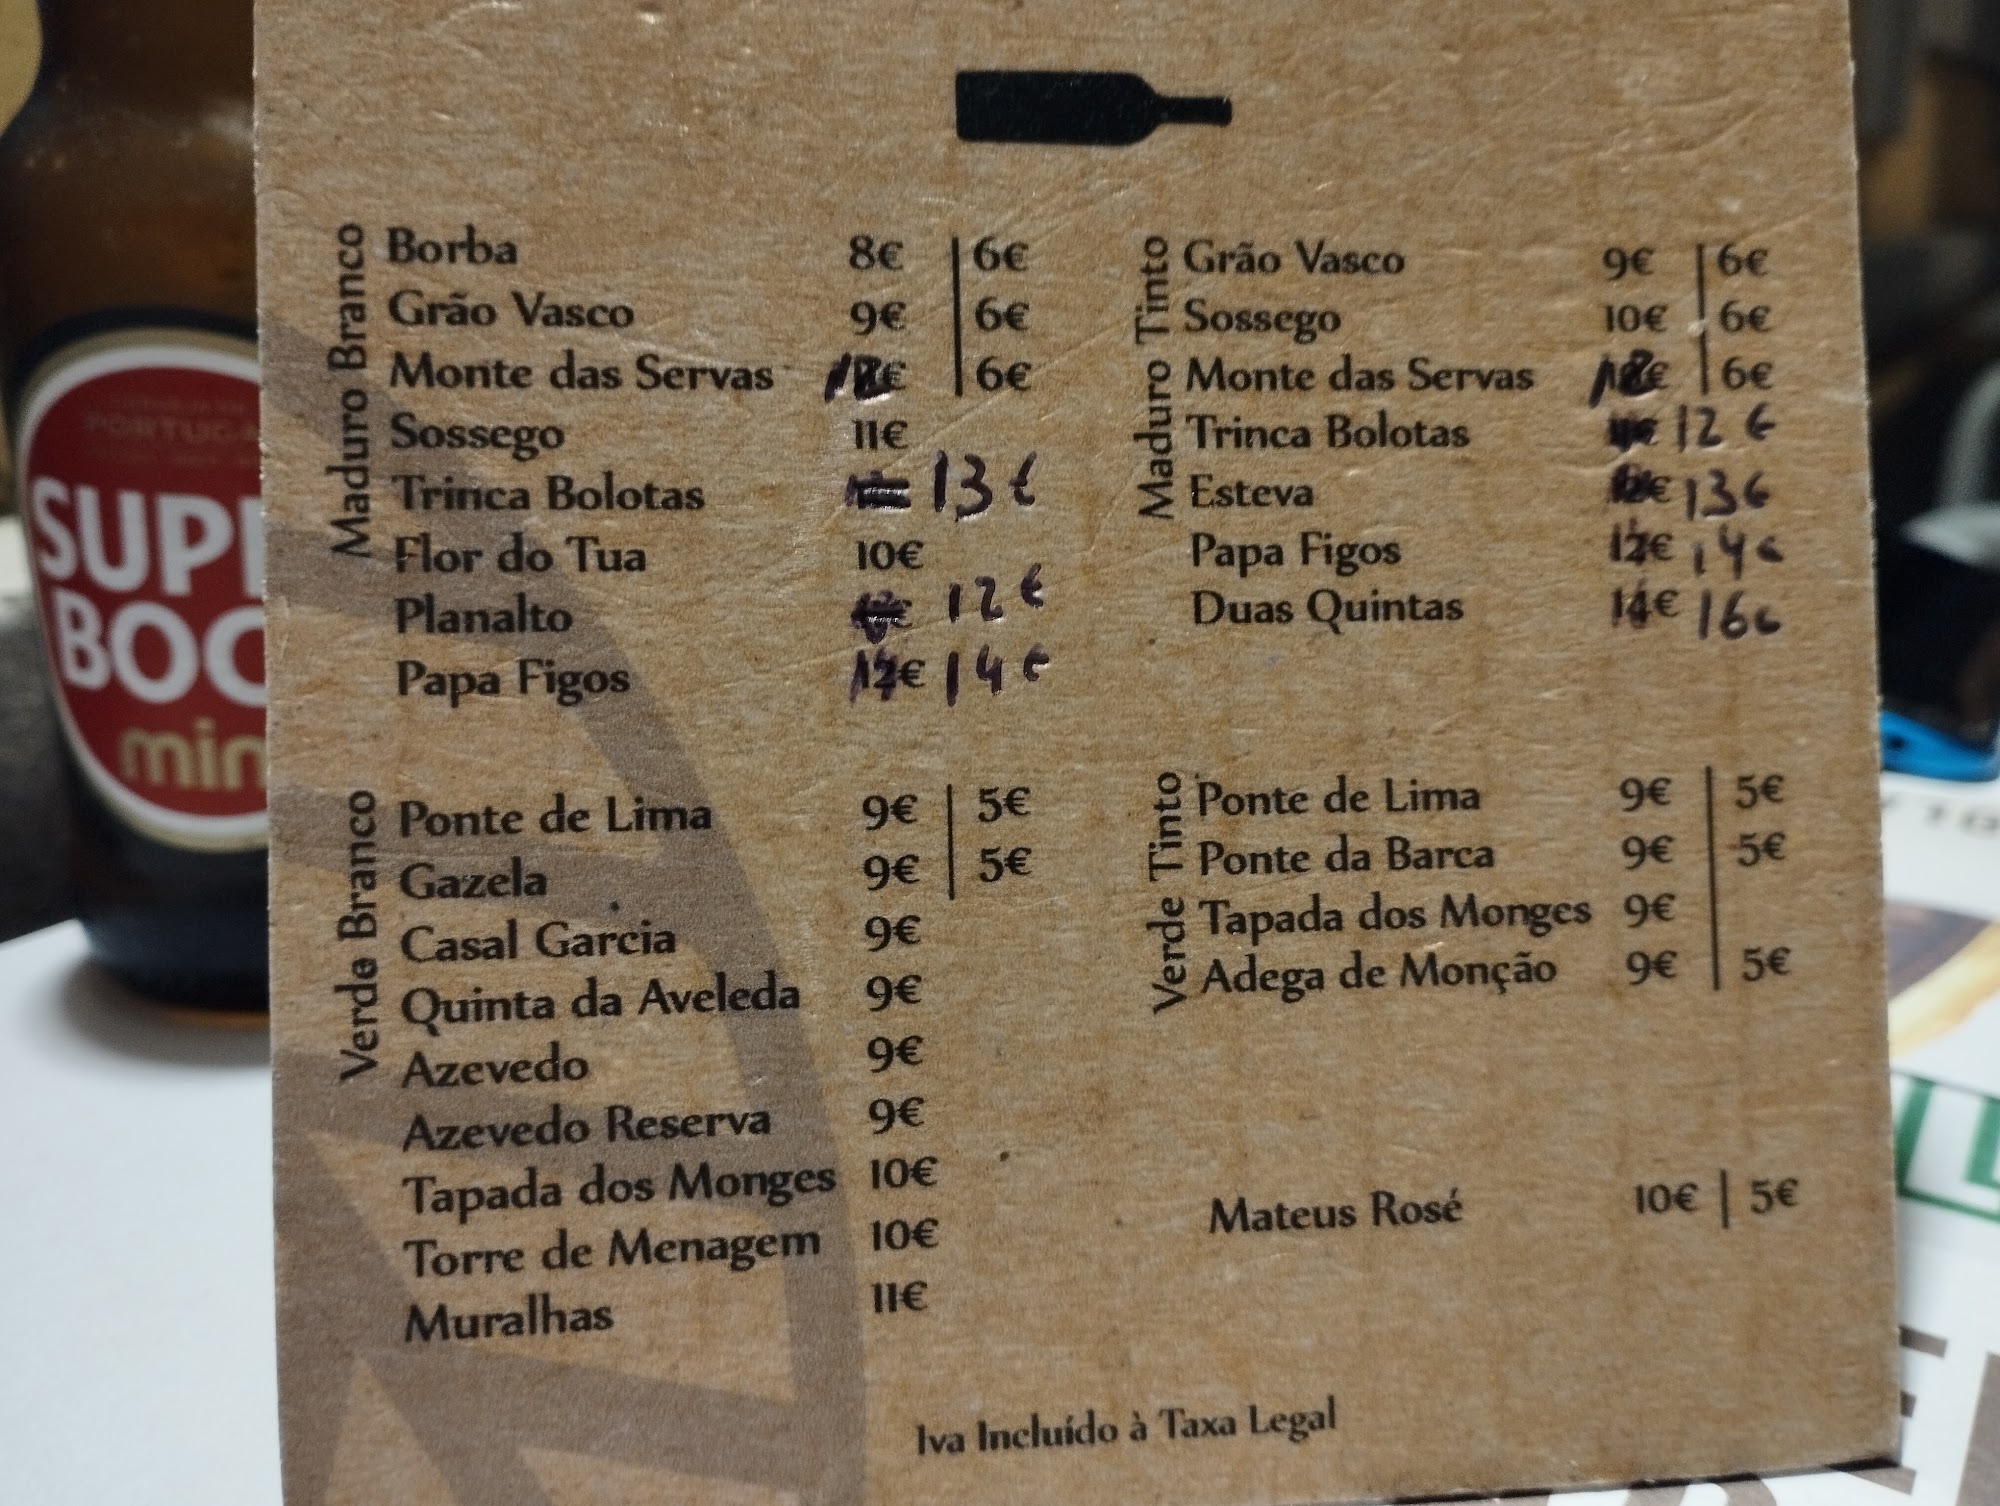 Maduro Branco
Borba 8€ | 6€
Grão Vasco 9€ | 6€
Monte das Servas 12€ | 6€
Sossego 11€
Trinca Bolotas 13€
Flor do Tua 10€
Planalto 12€
Papa Figos 12€ 14€
Maduro Tinto
Grão Vasco 9€ | 6€
Sossego 10€ | 6€
Monte das Servas 12€ | 6€
Trinca Bolotas 12€
Esteva 13€
Papa Figos 12€ 14€
Duas Quintas 14€ 16€
Verde Branco
Ponte de Lima 9€ | 5€
Gazela 9€ | 5€
Casal Garcia 9€
Quinta da Aveleda 9€
Azevedo 9€
Azevedo Reserva 9€
Tapada dos Monges 10€
Torre de Menagem 10€
Muralhas 11€
Verde Tinto
Ponte de Lima 9€ | 5€
Ponte da Barca 9€ | 5€
Tapada dos Monges 9€
Adega de Monção 9€ | 5€
Mateus Rosé 10€ | 5€
Iva Incluído à Taxa Legal
PORTUGA
SUPE
BOC
min